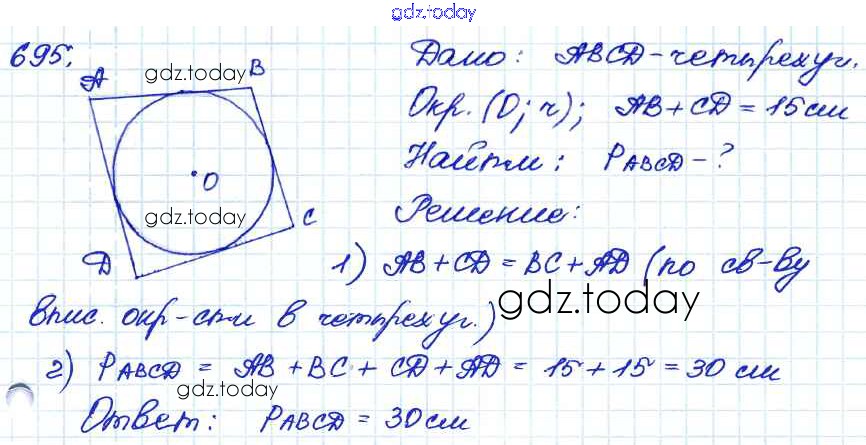 gdz.today
695.
Дано: ABCD-четырехуг.
gdz.today
A
B
Окр. (O; r); AB + CD = 15 см
Найти: PABCD - ?
O
gdz.today
C
Решение:
D
1) AB + CD = BC + AD (по св-ву
впис. окр-сти в четырехуг.)
gdz.today
2) PABCD = AB + BC + CD + AD = 15 + 15 = 30 см
gdz.today
Ответ: PABCD = 30 см